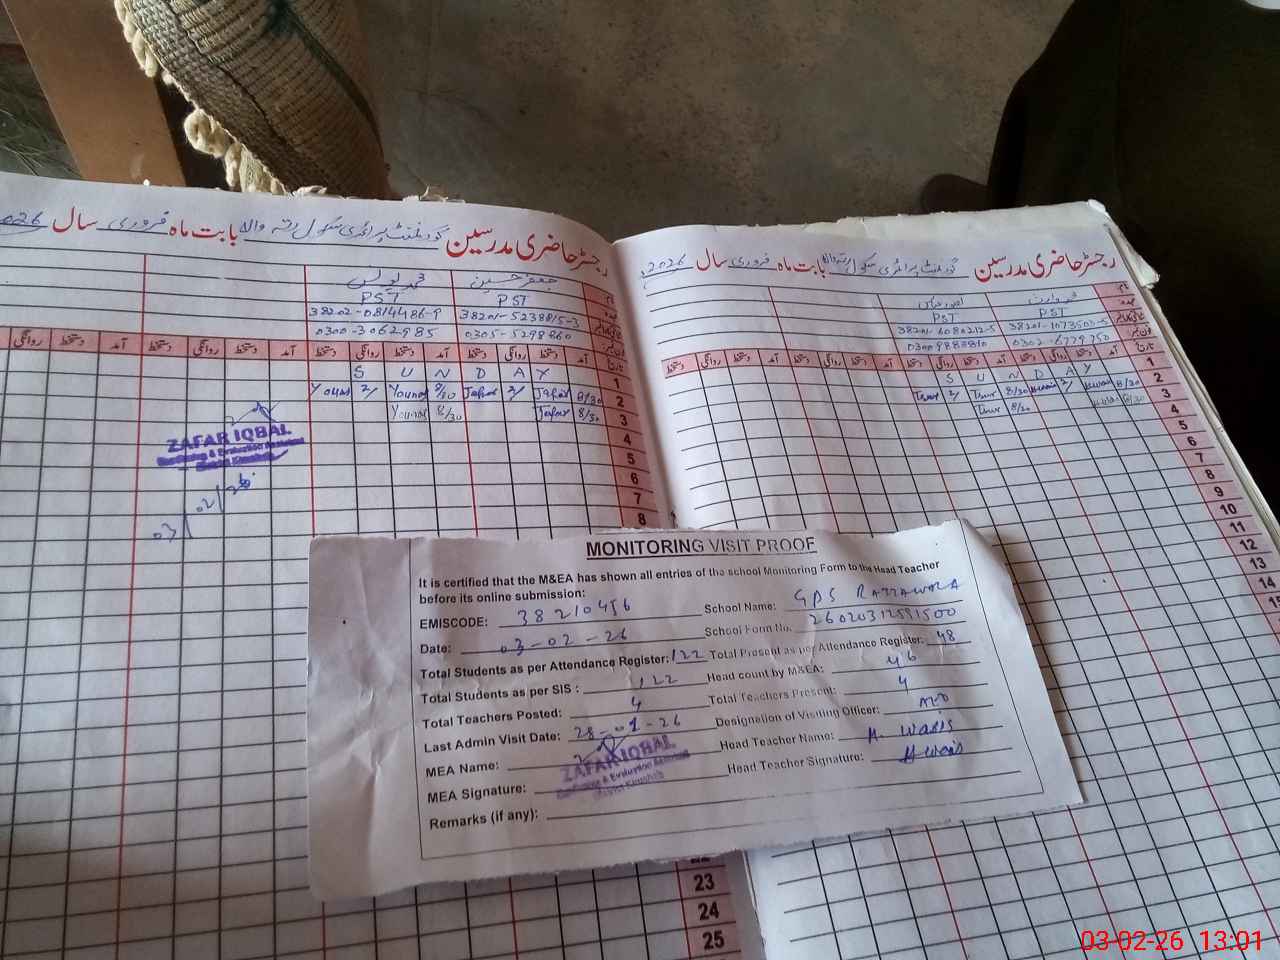 رجسٹر حاضری مدرسین گورنمنٹ پرائمری سکول رتہ والہ بابت ماہ فروری سال 2026
جعفر حسین محمد یونس
PST PST
38201-5238815-3 38202-0814486-9
0305-5298860 0300-3062985
تاریخ آمد دستخط روانگی دستخط آمد دستخط روانگی دستخط آمد دستخط روانگی دستخط آمد دستخط روانگی
1 S U N D A Y
2 8/30 Jafar 2/ Jafar 8/30 Younas 2/ Younas
3 8/30 Jafar 8/30 Younas
4
5
6
7
8
ZAFAR IQBAL
Monitoring & Evaluation Assistant
District Khushab
03/02/26
رجسٹر حاضری مدرسین گورنمنٹ پرائمری سکول رتہ والہ بابت ماہ فروری سال 2026
محمد وارث
PST PST
38201-1073503-5 38201-6080212-5
0302-6779750 03009883810
تاریخ آمد دستخط روانگی دستخط آمد دستخط روانگی دستخط آمد دستخط روانگی دستخط
1 S U N D A Y
2 8/30 2/ 8/30 2/
3 8/30 8/30
4
5
6
7
8
9
10
11
12
13
14
15
MONITORING VISIT PROOF
It is certified that the M&EA has shown all entries of the school Monitoring Form to the Head Teacher
before its online submission:
EMISCODE: 38210456 School Name: GPS RATTAWALA
Date: 03-02-26 School Form No. 26020312591500
Total Students as per Attendance Register: 122 Total Present as per Attendance Register: 48
Total Students as per SIS : 122 Head count by M&EA: 46
Total Teachers Posted: 4 Total Teachers Present: 4
Last Admin Visit Date: 28-01-26 Designation of Visiting Officer: AEO
MEA Name: Head Teacher Name: M. WARIS
ZAFAR IQBAL
Monitoring & Evaluation Assistant
District Khushab
MEA Signature: Head Teacher Signature: Mwaris
Remarks (if any):
23
24
25
03-02-26 13:01